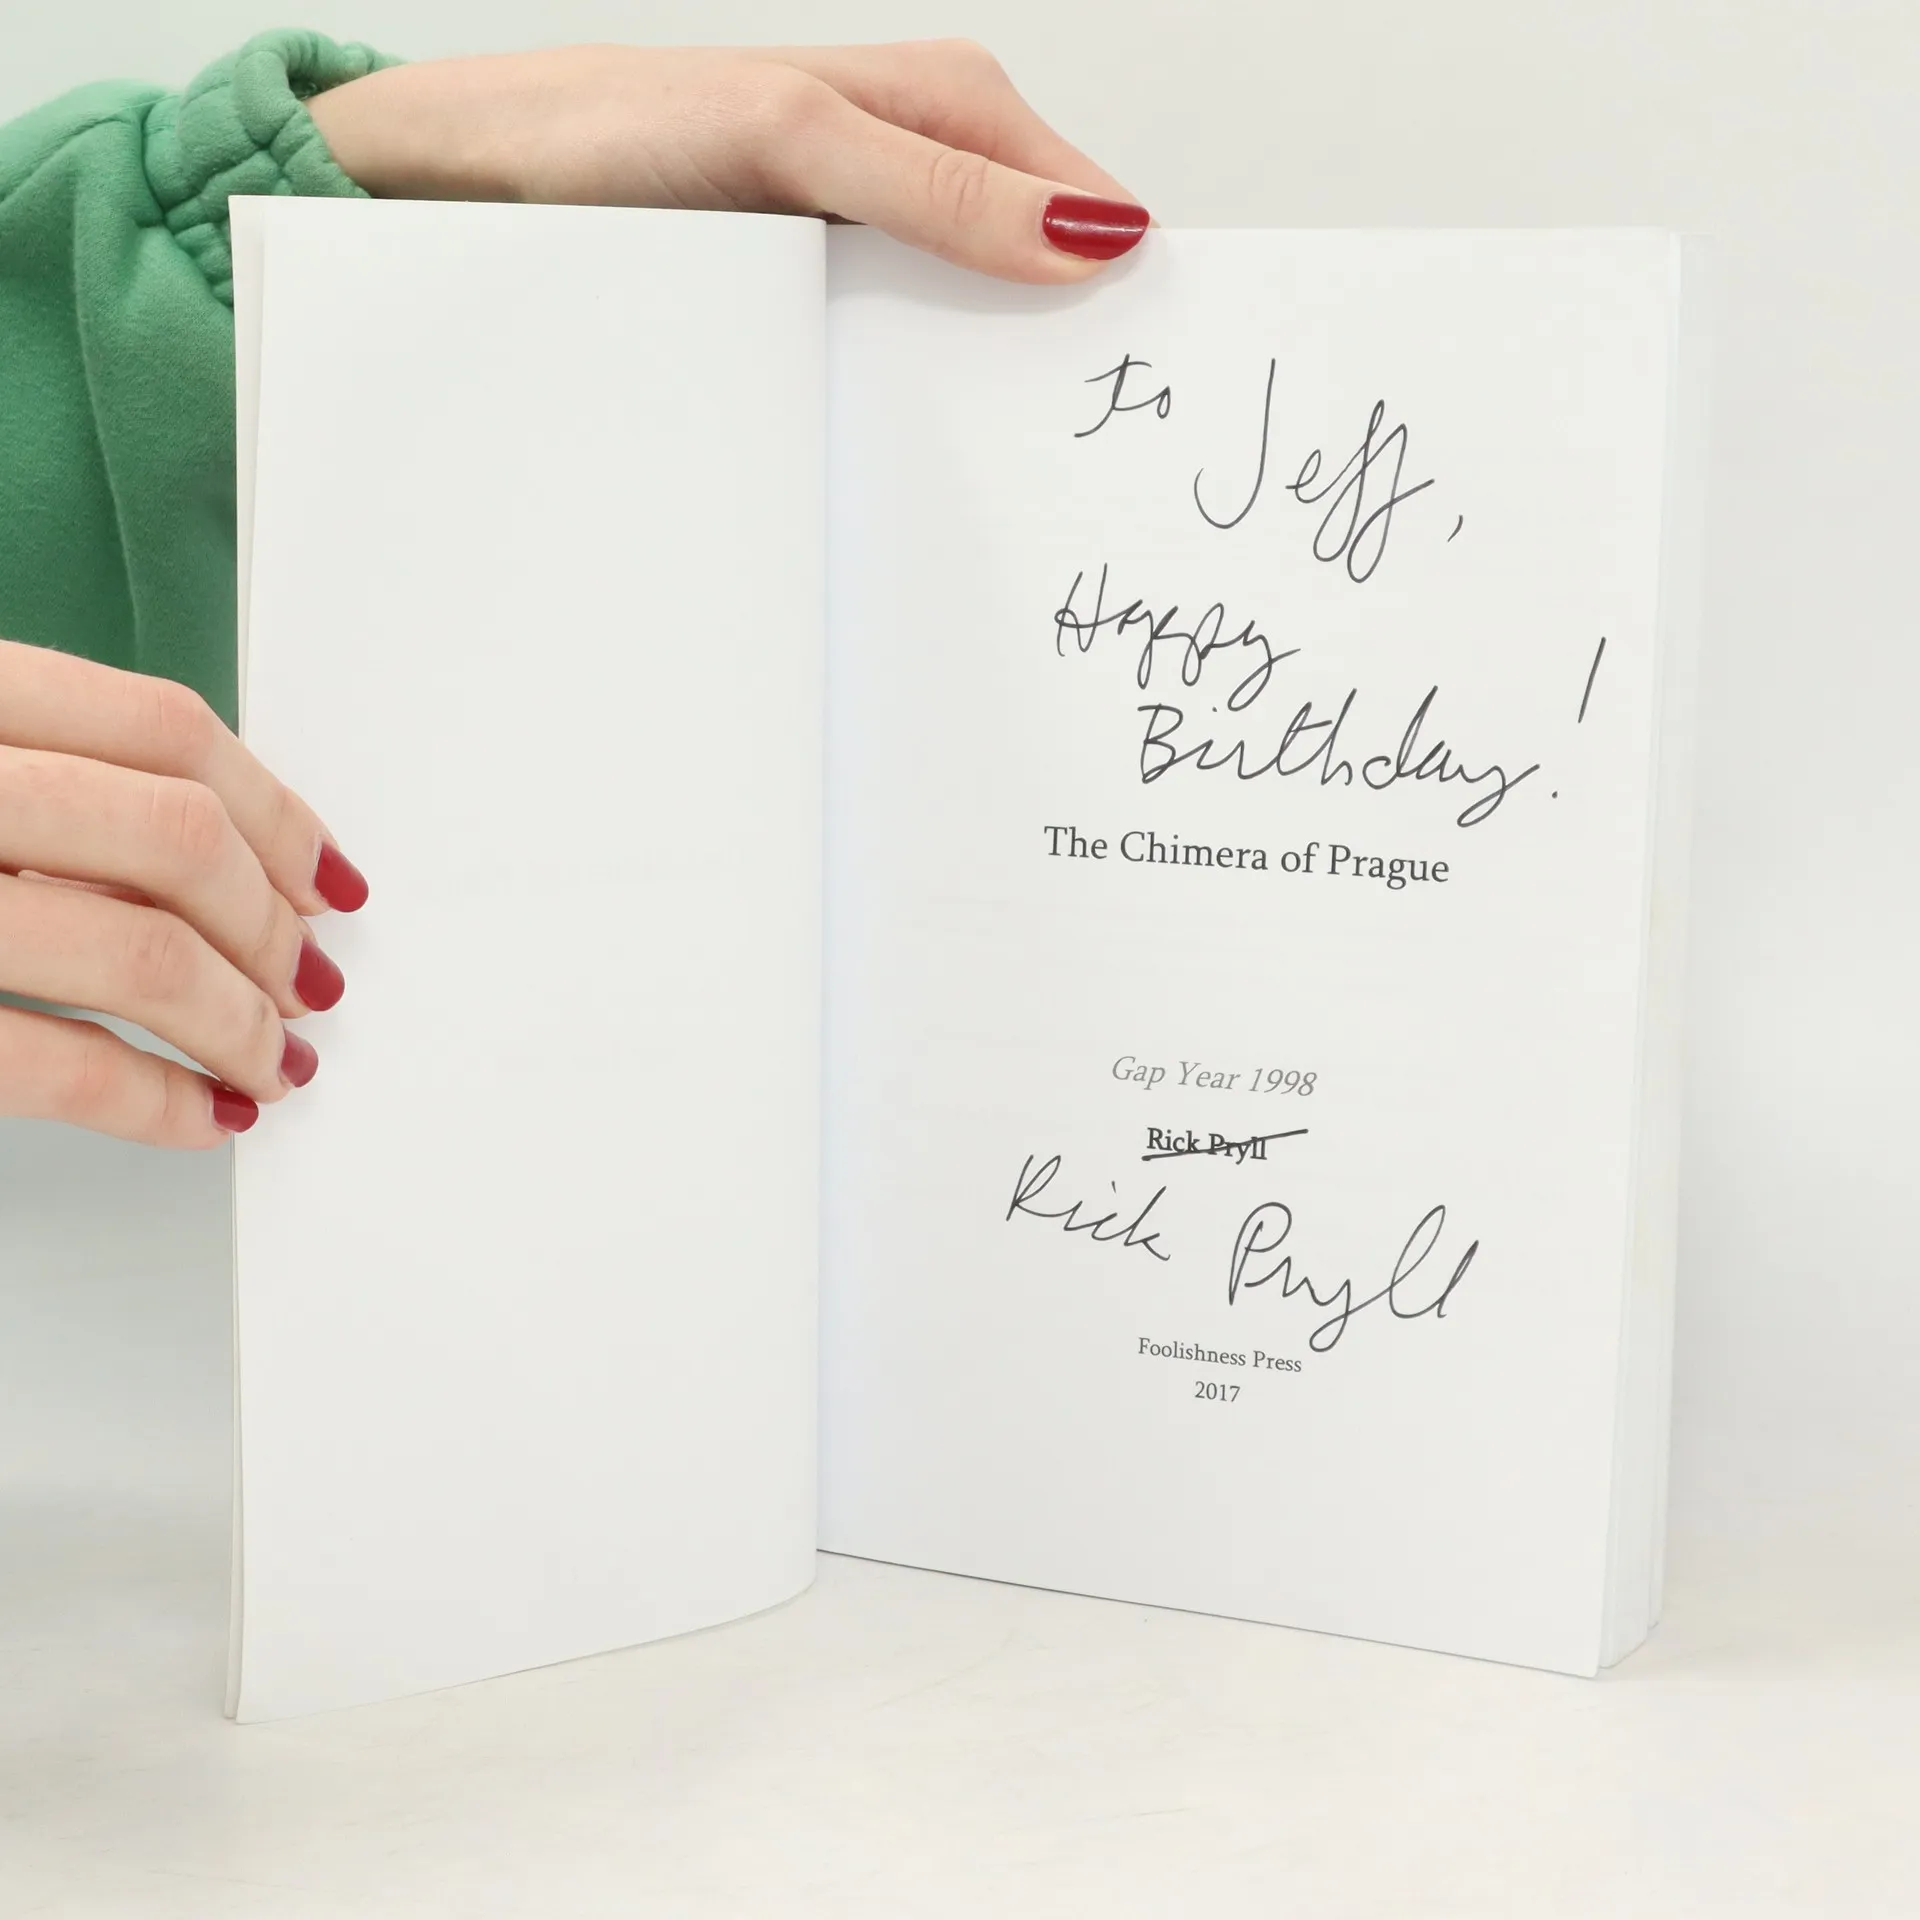 to Jeff,
Happy
Birthday!
The Chimera of Prague
Gap Year 1998
Rick Pryll
Rick Pryll
Foolishness Press
2017